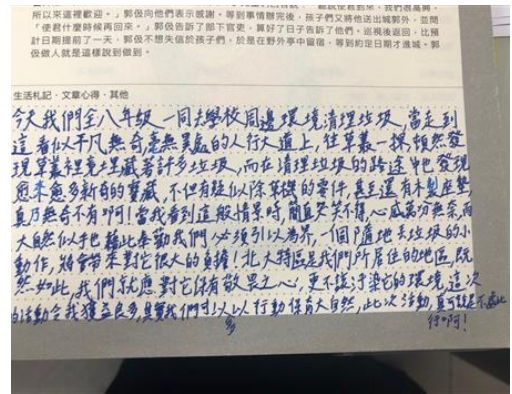 所以來這裡歡迎。」郭伋向他們表示感謝。等到事情辦完後，孩子們又將他送出城郭外，並問
「使君什麼時候再回來。」郭伋告訴了部下官吏，算好了日子告訴了他們。巡視後返回，比預
計日期提前了一天，郭伋不想失信於孩子們，於是在野外亭中留宿，等到約定日期才進城。郭
伋做人就是這樣說到做到。
生活札記．文章心得．其他
今天我們全八年級一同去學校周邊環境清理垃圾，當走到
這看似平凡無奇毫無異處的人行大道上，往草叢一探，頓然發
現草叢裡竟埋藏著許多垃圾，而在清理垃圾的路途中也發現
愈來愈多新奇的寶藏，不但有疑似除草機的零件，甚至還有木製座墊，
真乃無奇不有啊！當我看到這般情景時，簡直哭笑不得，心感萬分無奈，而
大自然似乎也藉此奉勸我們必須引以為界，一個隨地丟垃圾的小
動作，都會帶來對它很大的負擔！北大特區是我們所居住的地區，既
然如此，我們就應對它保有敬畏之心，更不該汙染它的環境，這次
的活動令我獲益良多，其實我們可以以行動保育大自然，此次活動，真可說是不虛此
行啊！